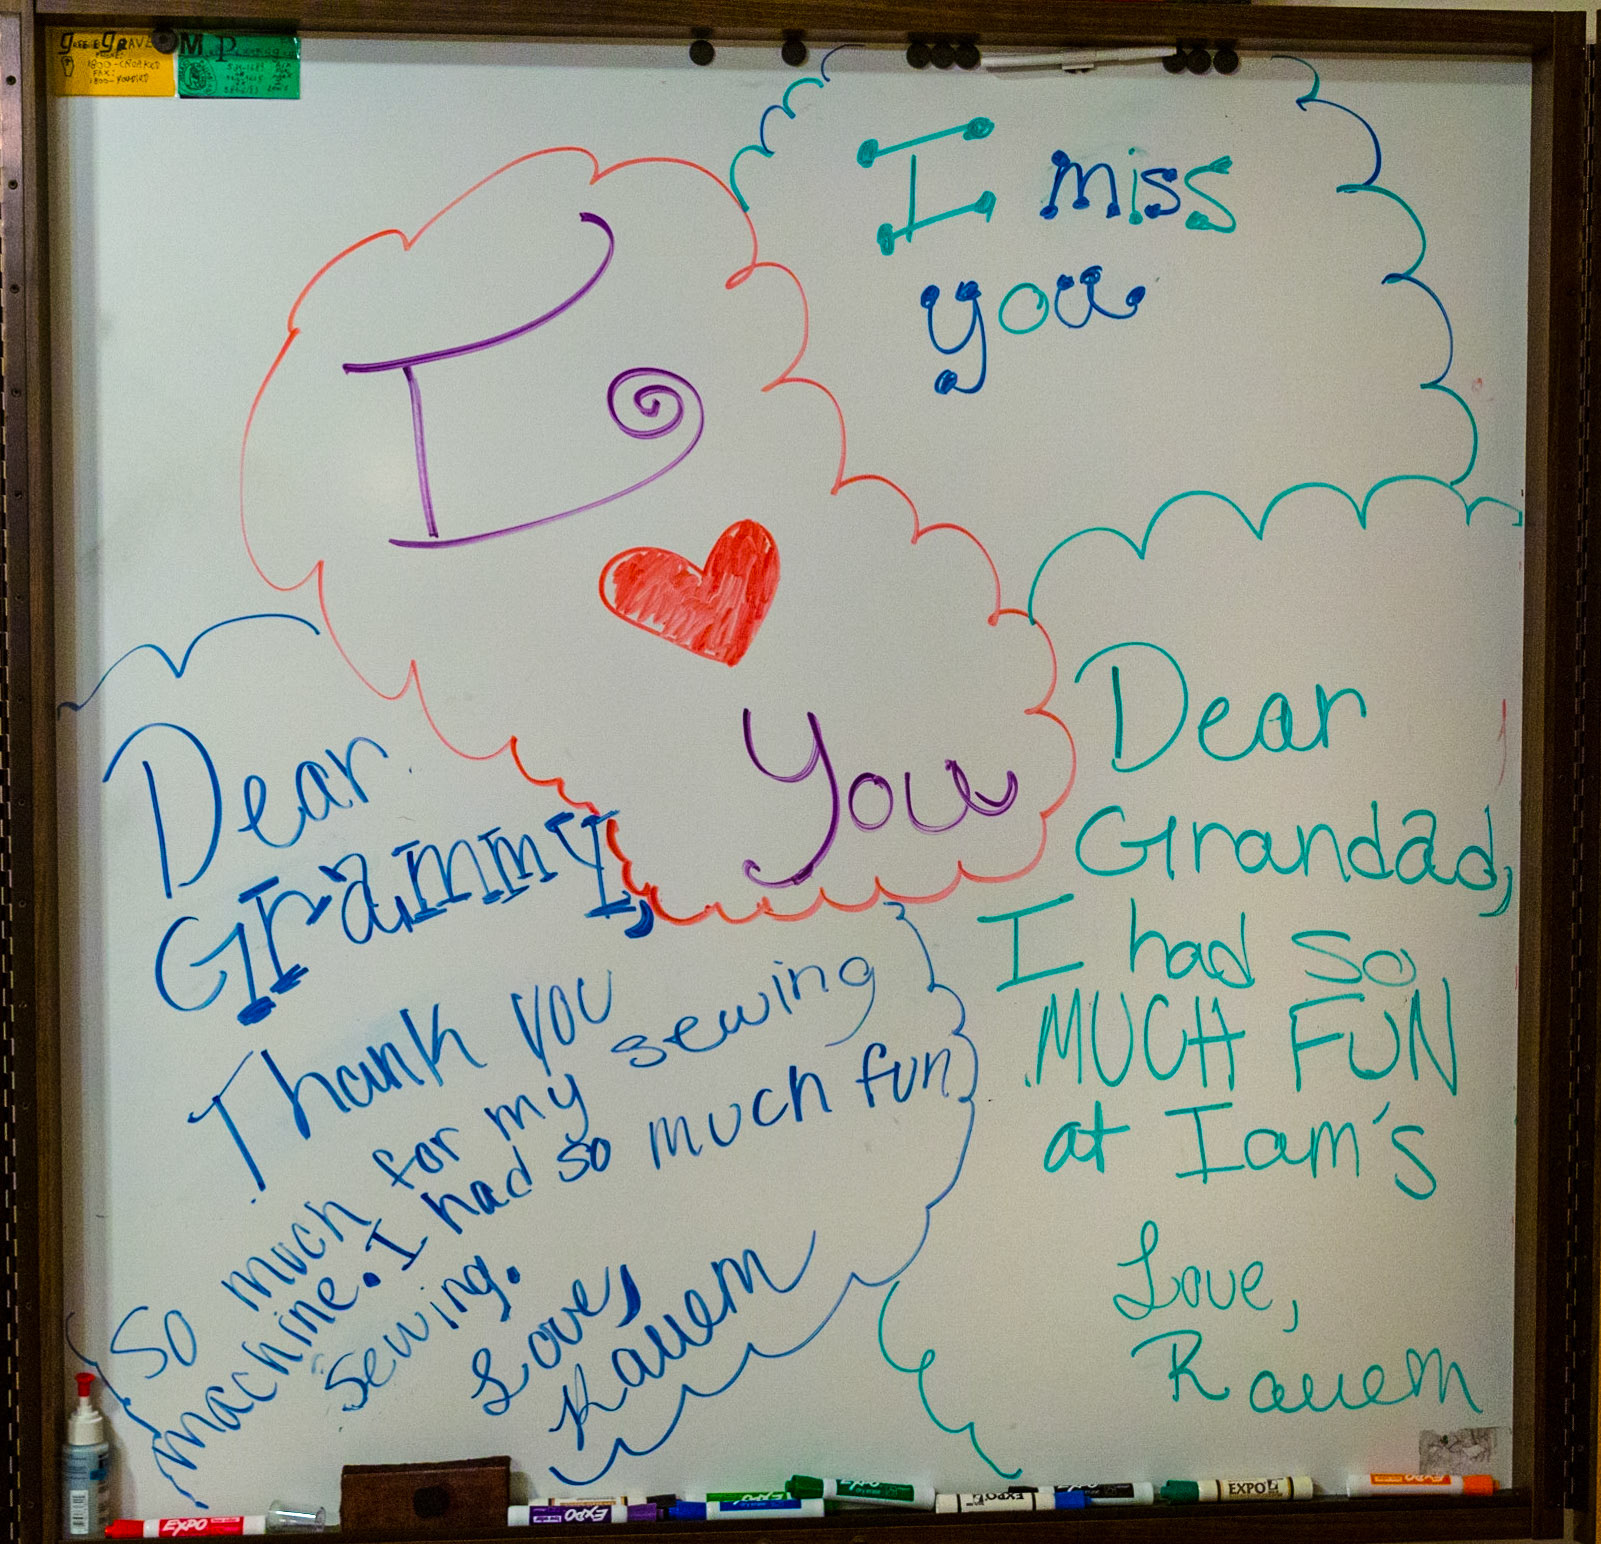 I miss
you
I
You
Dear
Grammy,
Thank you
so much for my sewing
machine. I had so much fun
sewing.
Love,
Rauem
Dear
Grandad,
I had so
MUCH FUN
at Iam's
Love,
Rauem
EXPO
EXPO
EXPO
EXPO
EXPO
EXPO